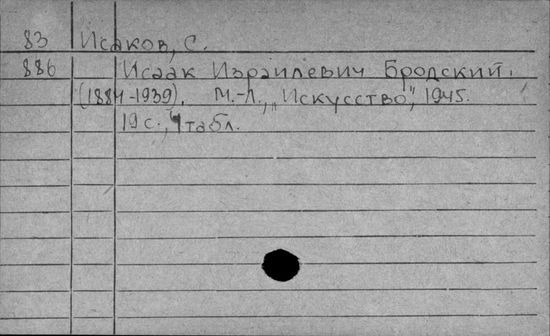 83 Исаков, С.
886 Исаак Израилевич Бродский.
(1884-1939). М.-Л., "Искусство", 1945.
19 с., 4 табл.